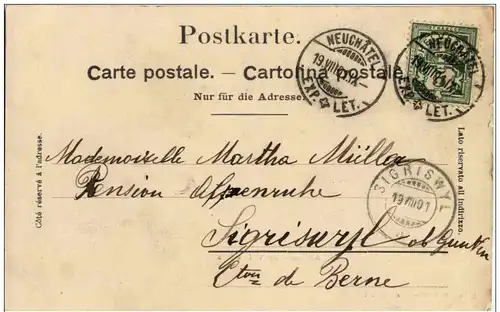 Postkarte.
Carte postale. — Cartolina postale.
Nur für die Adresse.
NEUCHÂTEL
19.VIII.01.IX–
EXP. LET.
NEUCHÂTEL
EXP. LET.
Côté réservé à l'adresse.
Lato riservato all indirizzo.
Mademoiselle Martha Müller
Pension Alpenruhe
Sigriswyl ob Gunten
Cton de Berne
SIGRISWYL
19.VIII.01